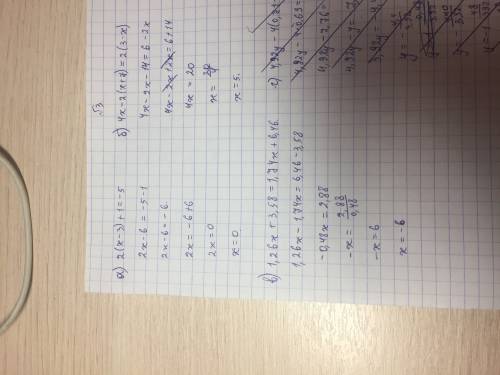 √3
а) 2(x-3)+1=-5
2x-6=-5-1
2x-6=-6
2x=-6+6
2x=0
x=0
б) 4x-2(x+7)=2(3-x)
4x-2x-14=6-2x
4x-2x+2x=6+14
4x=20
x=
x=5.
в) 1,26x+3,58=1,74x+6,46
1,26x-1,74x=6,46-3,58
-0,48x=2,88
-x=2,88/0,48
-x=6
x=-6
г) 4,92y-4(0,8
4,92y-4+0,69=
4,92y-2,76=
4,92y-y=
3,92y=
y=-